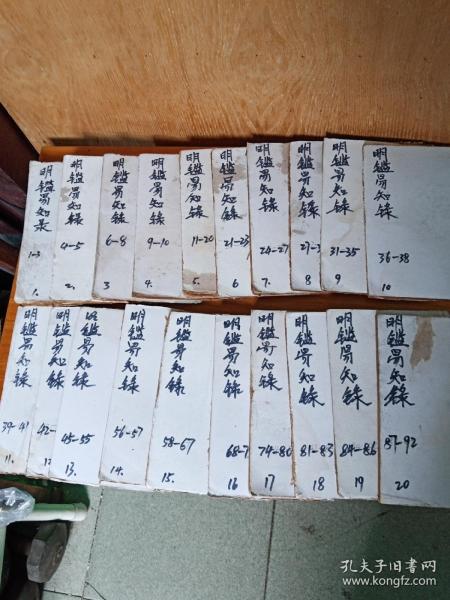 明鑑易知录
1-3
1.
明鑑易知錄
4-5
2.
明鑑易知錄
6-8
3
明鑑易知錄
9-10
4.
明鑑易知錄
11-20
5.
明鑑易知錄
21-23
6
明鑑易知錄
24-27
7.
明鑑易知錄
8
明鑑易知錄
31-35
9
明鑑易知錄
36-38
10
明鑑易知錄
39-41
11.
明鑑易知錄
42-
12
明鑑易知錄
45-55
13.
明鑑易知錄
56-57
14.
明鑑易知錄
58-67
15.
明鑑易知錄
68-7
16
明鑑易知錄
74-80
17
明鑑易知錄
81-83
18
明鑑易知錄
84-86
19
明鑑易知錄
87-92
20
孔夫子旧书网
www.kongfz.com